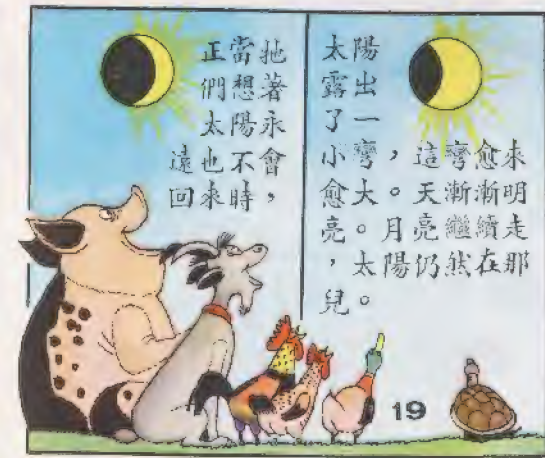 正當牠
們想著
太陽永
遠也不會
回來時，
太陽
露出
了一
小彎，這彎愈來
愈大。天漸漸明
亮。月亮繼續走
，太陽仍然在那
兒。
19